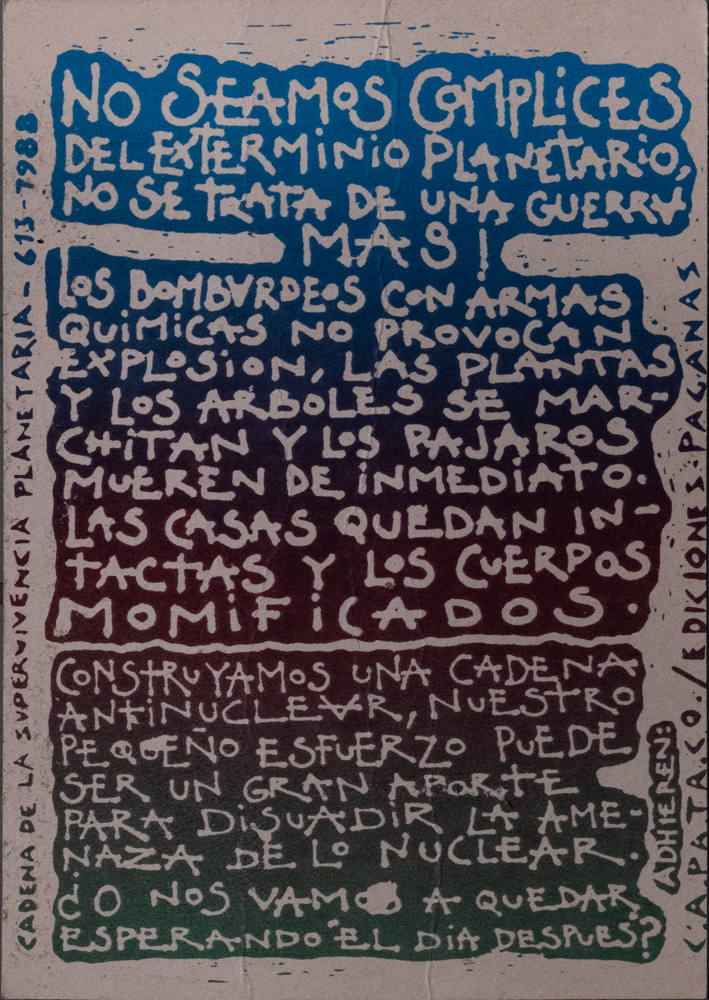 NO SEAMOS COMPLICES
DEL EXTERMINIO PLANETARIO,
NO SE TRATA DE UNA GUERRA
MAS!
LOS BOMBARDEOS CON ARMAS
QUiMiCAS NO PROVOCAN
EXPLOSiON, LAS PLANTAS
Y LOS ARBOLES SE MAR-
CHiTAN Y LOS PAJAROS
MUEREN DE iNMEDiATO.
LAS CASAS QUEDAN IN-
TACTAS Y LOS CUERPOS
MOMiFiCADOS.
CONSTRUYAMOS UNA CADENA
ANTINUCLEAR, NUESTRO
PEQUEÑO ESFUERZO PUEDE
SER UN GRAN APORTE
PARA DiSUADiR LA AME-
NAZA DE LO NUCLEAR.
¿O NOS VAMOS A QUEDAR
ESPERANDO "EL DiA DESPUES"?
CADENA DE LA SUPERVIVENCIA PLANETARIA- 613-7988
ADHIEREN:
C.A.PA.TA.CO./EDICIONES:PAGANAS